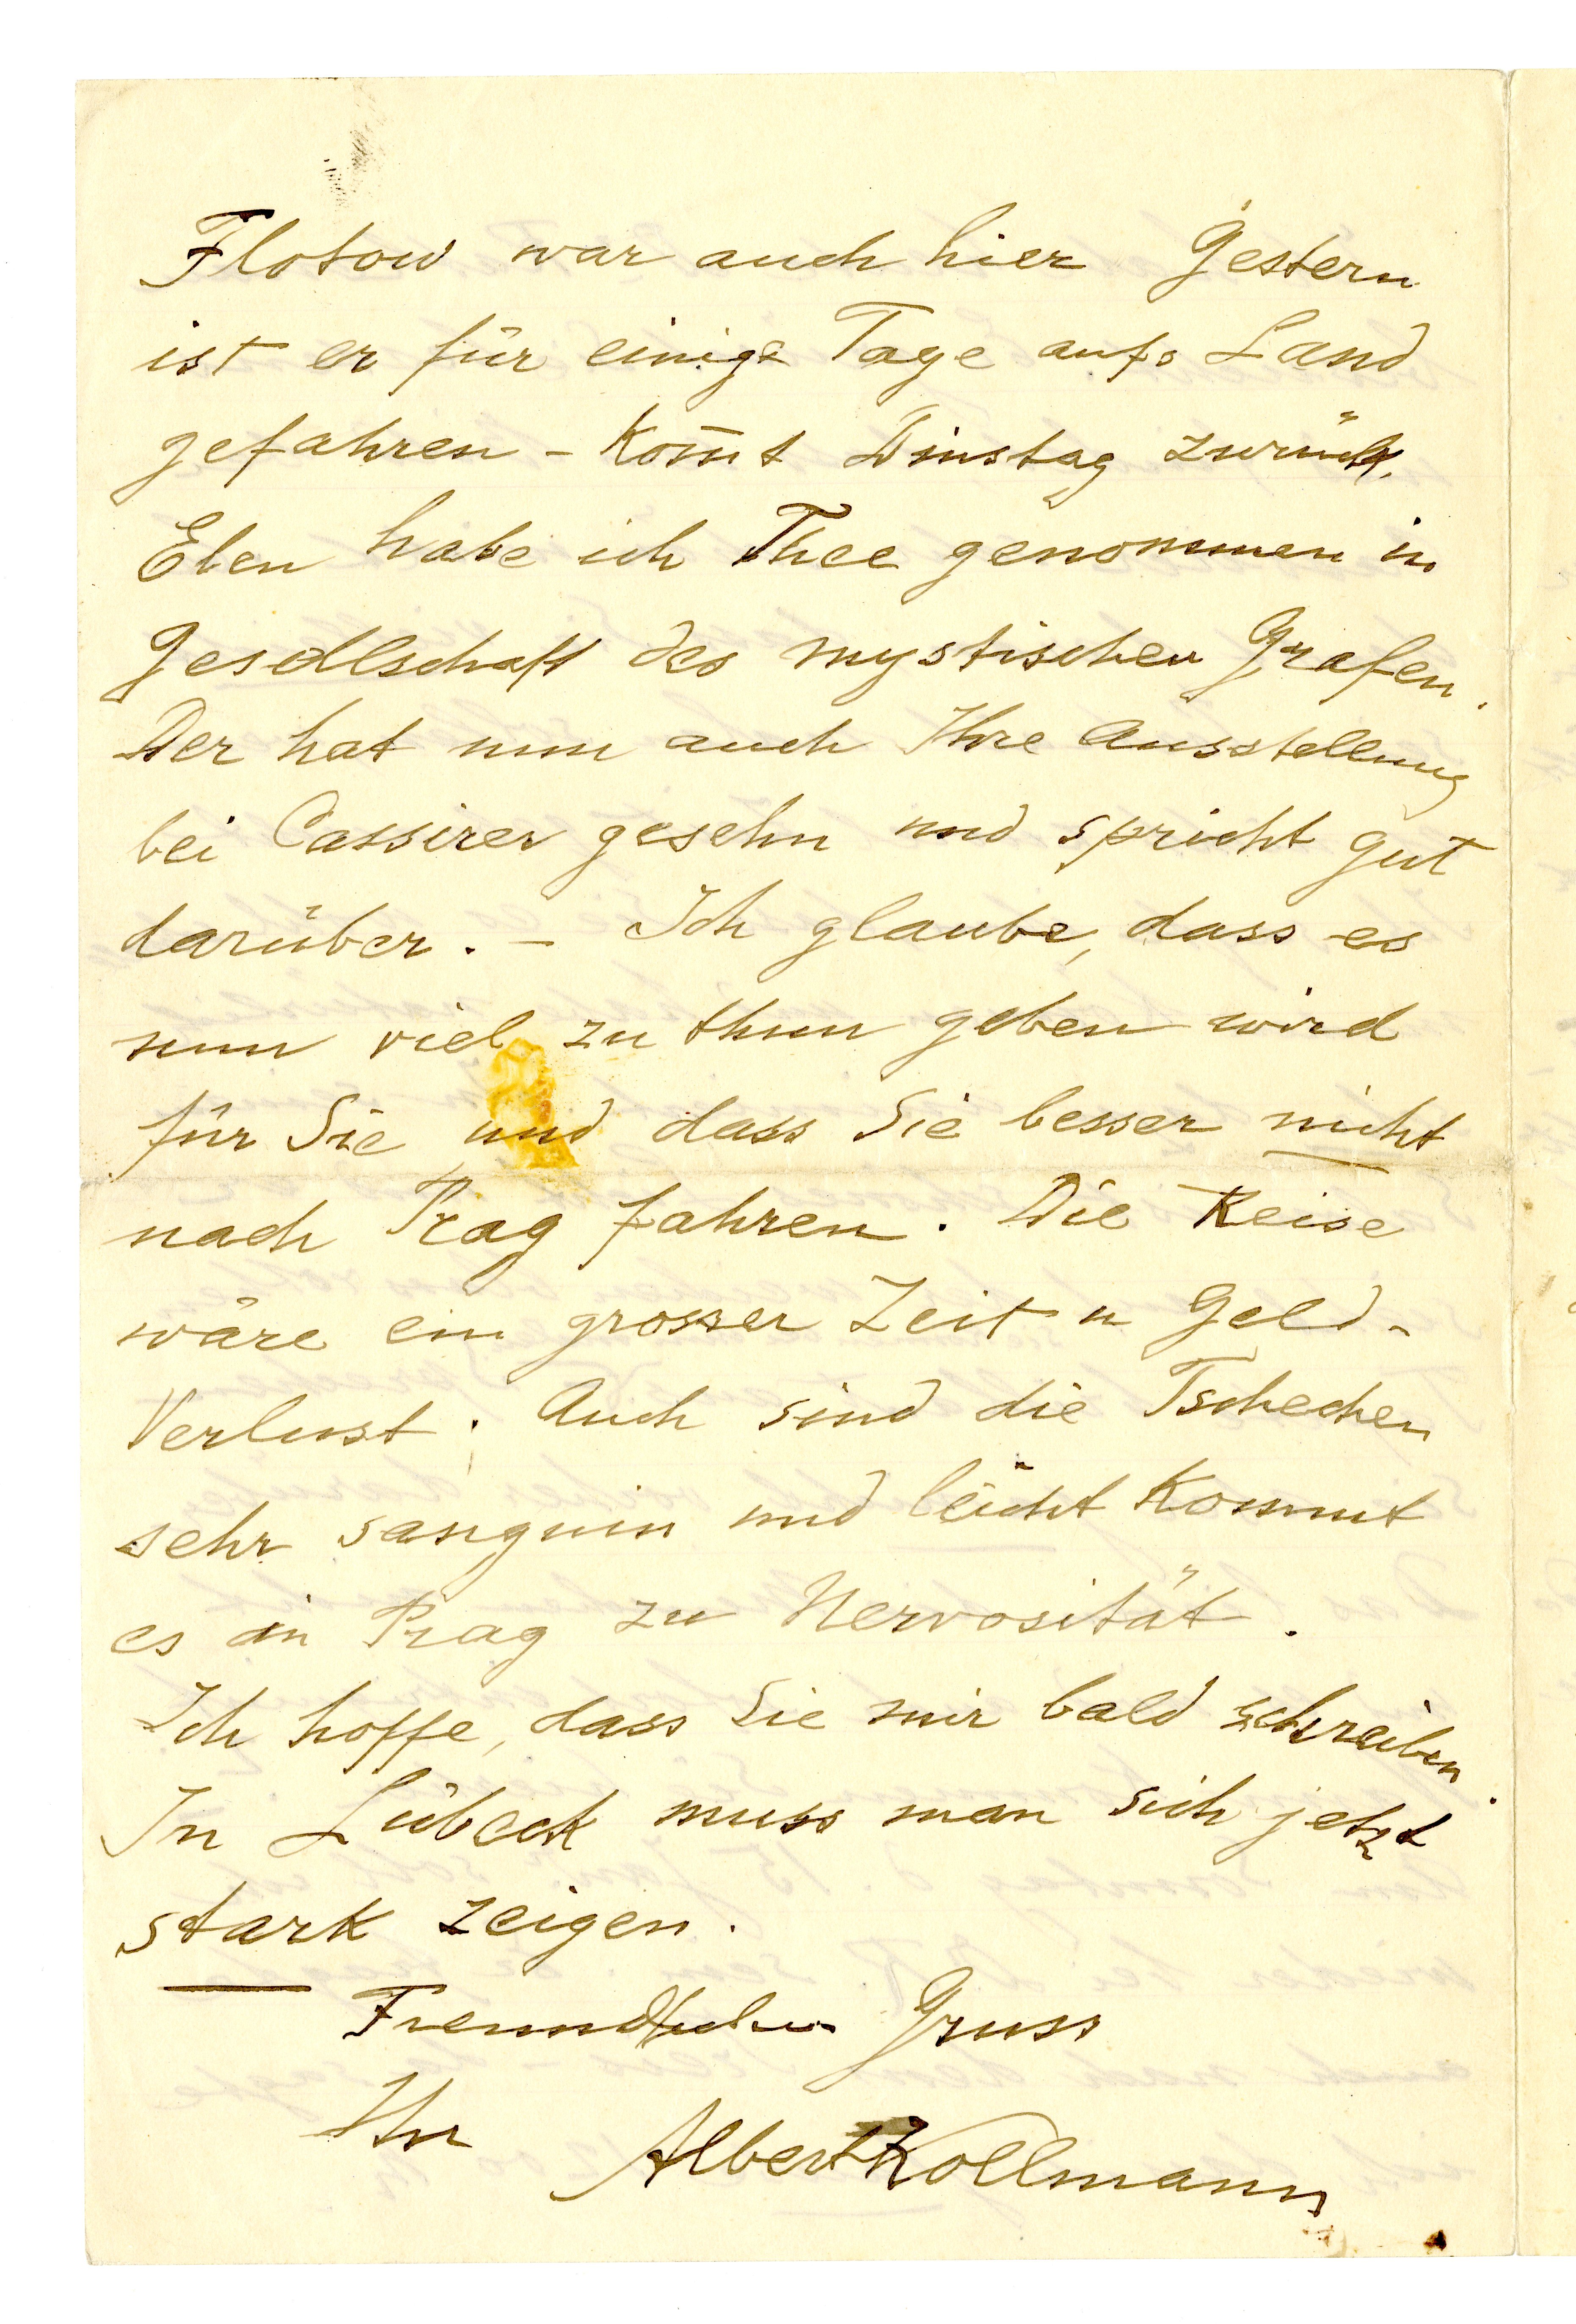 Flotow war auch hier Gestern
ist er für einige Tage aufs Land
gefahren – kom̄t Dinstag zurück.
Eben habe ich Thee genommen in
Gesellschaft des mystischen Grafen.
Der hat nun auch Ihre Ausstellung
bei Cassirer gesehn und spricht gut
darüber. – Ich glaube, dass es
nun viel zu thun geben wird
für Sie und dass Sie besser nicht
nach Prag fahren. Die Reise
wäre ein grosser Zeit u Geld-
Verlust. Auch sind die Tschechen
sehr sanguin und leicht kommt
es in Prag zu Nervosität.
Ich hoffe, dass Sie mir bald schreiben.
In Lübeck muss man sich jetzt
stark zeigen.
Freundlichen Gruss
Ihr Albert Kollmann